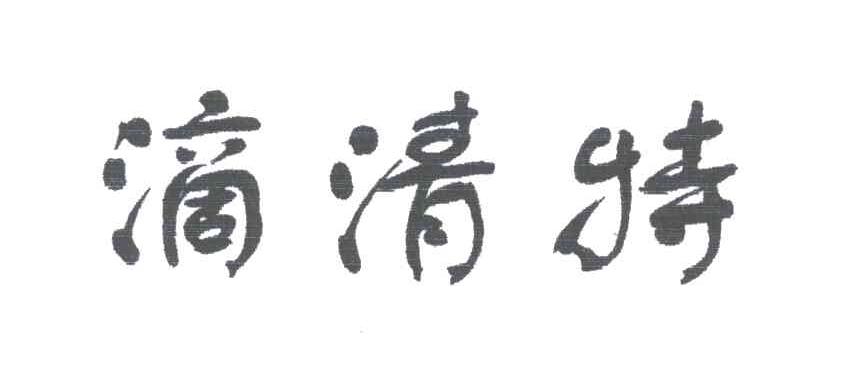 滴清特